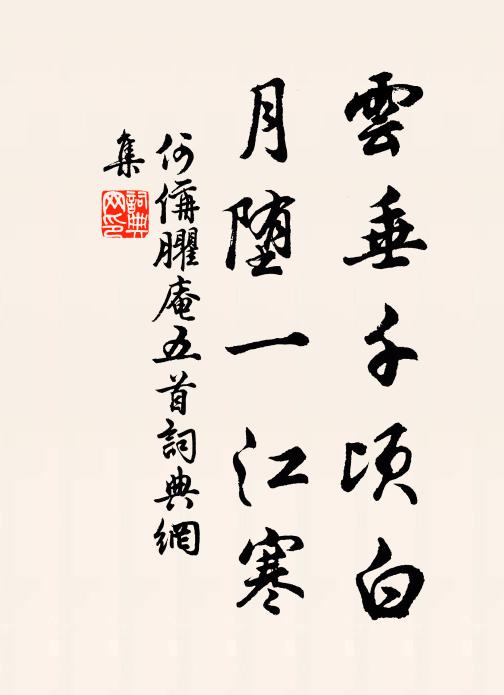 雲垂千頃白
月堕一江寒
何偁臞庵五首詞典網
集
詞典网印